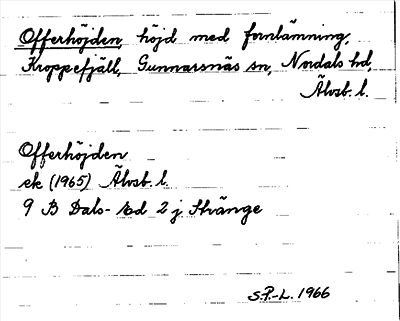 Offerhöjden, höjd med fornlämning,
Kroppefjäll, Gunnarsnäs sn, Nordals hd,
Älvsb. l.
Offerhöjden
ek (1965) Älvsb. l.
9 B Dals-Ed 2 j Stränge
S.P.-L. 1966